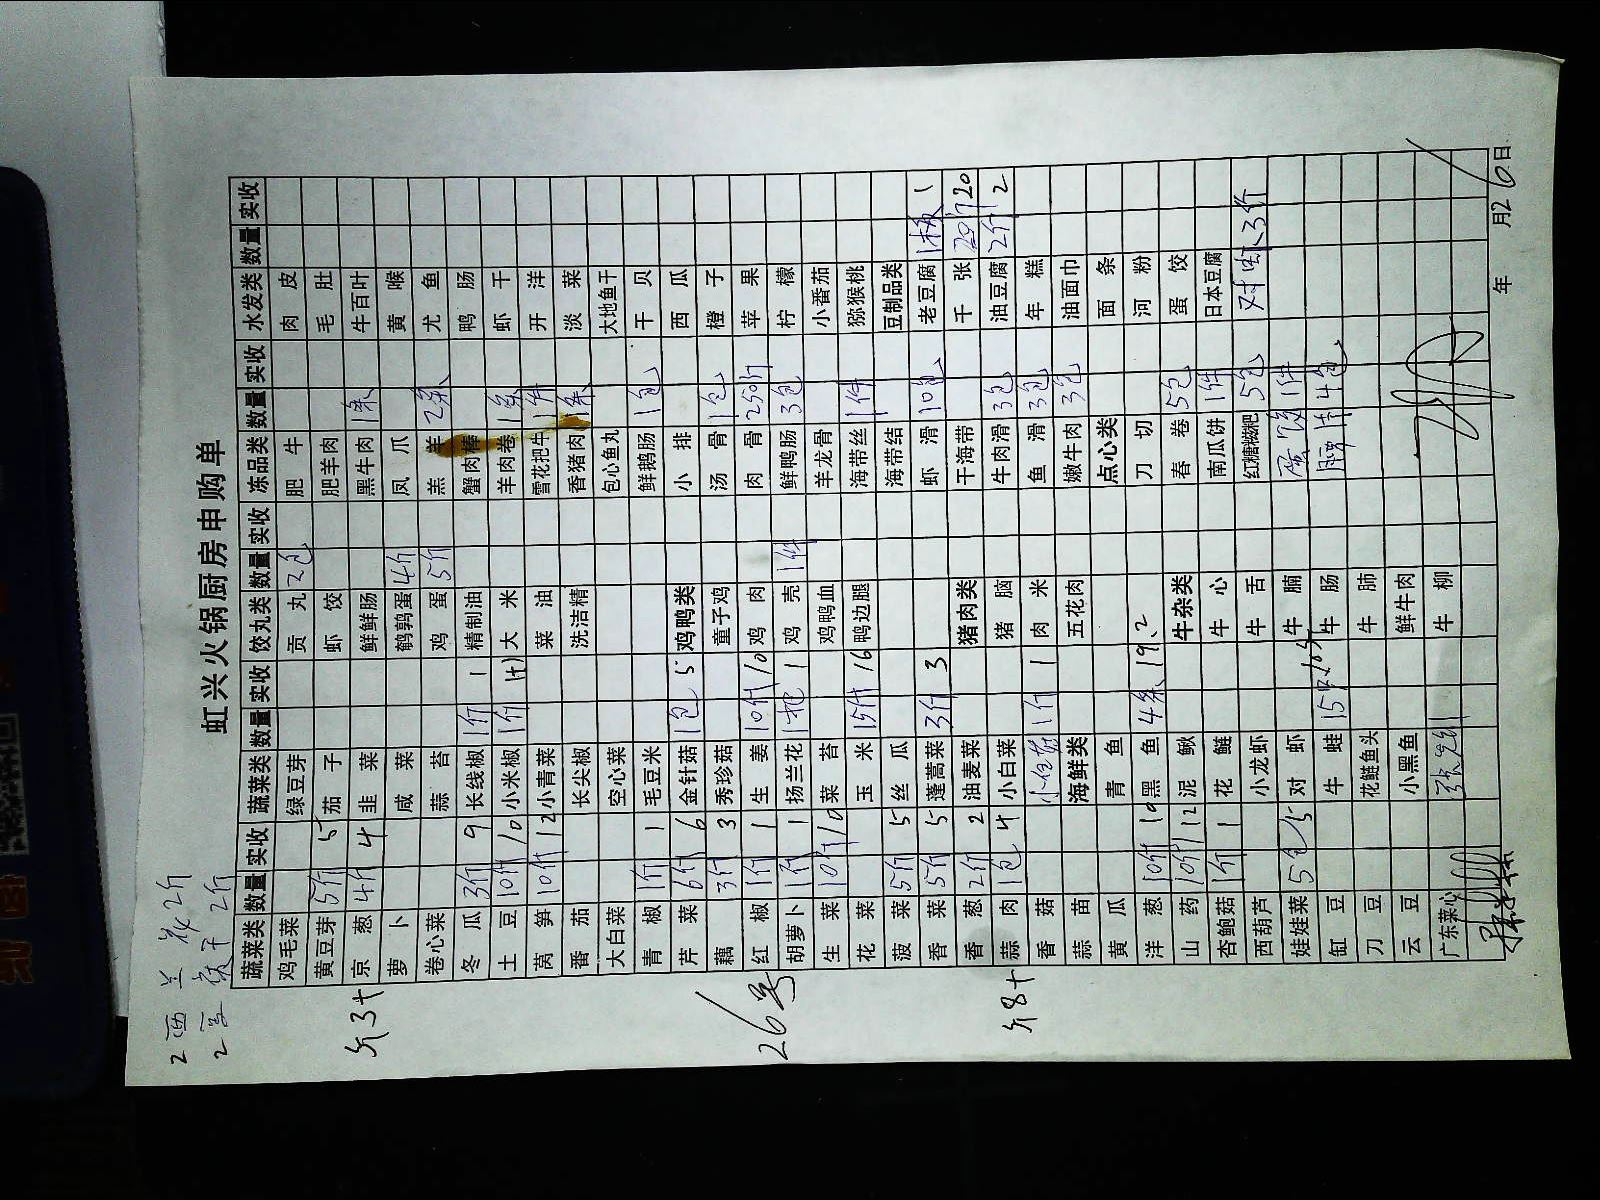 2 西兰花 2斤
2 豆
虹兴火锅厨房申购单
蔬菜类 数量 实收 蔬菜类 数量 实收 饺丸类 数量 实收 冻品类 数量 实收 水发类 数量 实收
鸡毛菜 绿豆芽 贡丸 2包 肥牛 肉皮
黄豆芽 5斤 5 茄子 虾饺 肥羊肉 毛肚
京葱 4斤 4 韭菜 鲜鲜肠 黑牛肉 1条 牛百叶
萝卜 咸菜 鹌鹑蛋 4斤 凤爪 黄喉
卷心菜 蒜苔 鸡蛋 5斤 羔羊 2条 尤鱼
冬瓜 3斤 9 长线椒 1斤 1 精制油 蟹肉棒 鸭肠
土豆 10斤 10 小米椒 1斤 大米 羊肉卷 1条 虾干
莴笋 10斤 12 小青菜 菜油 雪花把牛 1件 开洋
番茄 长尖椒 洗洁精 香猪肉 1条 淡菜
大白菜 空心菜 包心鱼丸 大地鱼干
青椒 1斤 1 毛豆米 鲜鹅肠 1包 干贝
芹菜 6斤 6 金针菇 1包 5 鸡鸭类 小排 西瓜
藕 3斤 3 秀珍菇 童子鸡 汤骨 1包 橙子
红椒 1斤 1 生姜 10斤 10 鸡肉 肉骨 250斤 苹果
胡萝卜 1斤 1 扬兰花 1把 1 鸡壳 1件 鲜鸭肠 3包 柠檬
生菜 10斤 10 菜苔 鸡鸭血 羊龙骨 小番茄
花菜 玉米 15斤 16 鸭边腿 海带丝 1件 猕猴桃
菠菜 5斤 5 丝瓜 海带结 豆制品类
香菜 5斤 5 蓬蒿菜 3斤 3 虾滑 10包 老豆腐 1板 1
香葱 2斤 2 油麦菜 猪肉类 干海带 千张 20 20
蒜肉 1包 4 小白菜 猪脑 牛肉滑 3包 油豆腐 2斤 2
香菇 1斤 1 肉米 鱼滑 3包 年糕
蒜苗 海鲜类 五花肉 嫩牛肉 3包 油面巾
黄瓜 青鱼 点心类 面条
洋葱 10斤 10 黑鱼 4条 19.2 刀切 河粉
山药 10斤 12 泥鳅 牛杂类 春卷 5包 蛋饺
杏鲍菇 1斤 1 花鲢 牛心 南瓜饼 1件 日本豆腐
西葫芦 小龙虾 牛舌 红糖糍粑 5包 对虾 3斤
娃娃菜 5包 5 对虾 牛腩 蛋饺 1件
缸豆 牛蛙 牛肠 4包
刀豆 花鲢鱼头 牛肺
云豆 小黑鱼 鲜牛肉
广东菜心 牛柳
年 月26日
26号